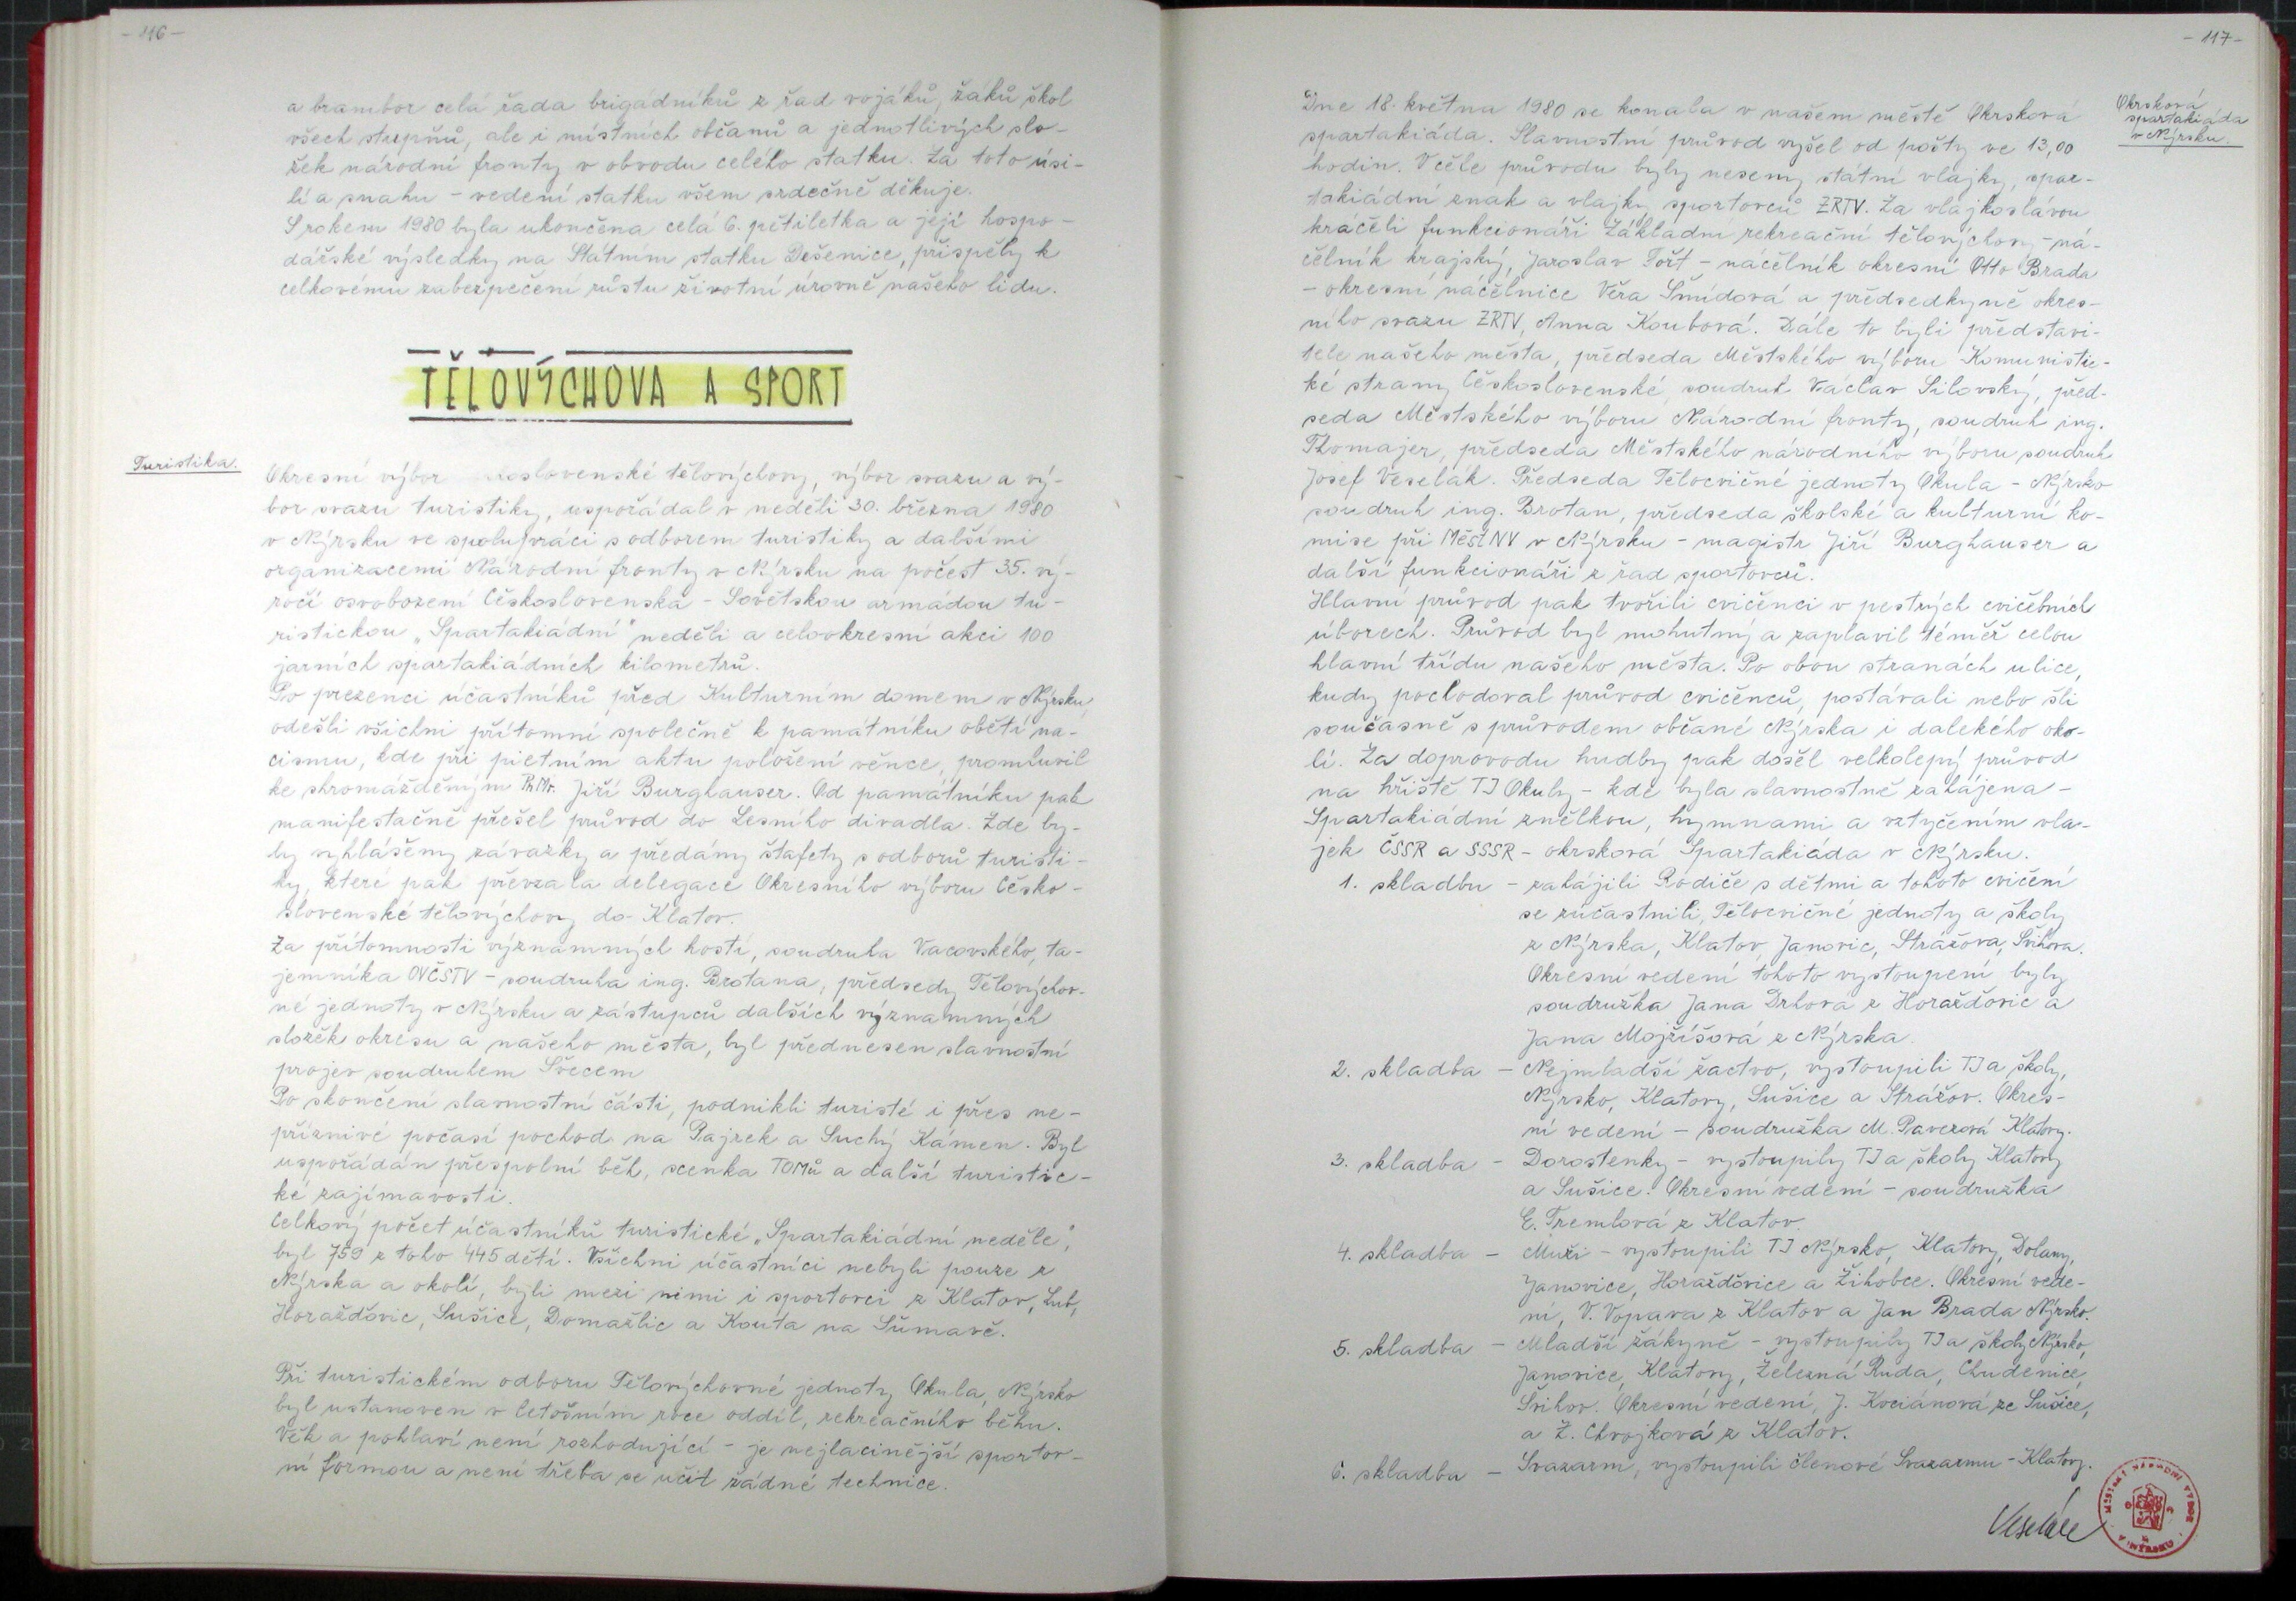 - 116 -
a brambor celá řada brigádníků z řad vojáků, žáků škol
všech stupňů, ale i místních občanů a jednotlivých slo-
žek národní fronty v obvodu celého statku. Za toto úsi-
lí a snahu - vedení statku všem srdečně děkuje.
S rokem 1980 byla ukončena celá 6. pětiletka a její hospo-
dářské výsledky na Státním statku Dešenice, přispěly k
celkovému zabezpečení růstu životní úrovně našeho lidu.
TĚLOVÝCHOVA A SPORT
Turistika.
Okresní výbor oslovenské tělovýchovy, výbor svazu a vý-
bor svazu turistiky, uspořádal v neděli 30. března 1980
v Nýrsku ve spolupráci s odborem turistiky a dalšími
organizacemi Národní fronty v Nýrsku na počest 35. vý-
ročí osvobození Československa - Sovětskou armádou tu-
ristickou „Spartakiádní" neděli a celookresní akci 100
jarních spartakiádních kilometrů.
Po prezenci účastníků před Kulturním domem v Nýrsku,
odešli všichni přítomní společně k památníku obětí na-
cismu, kde při pietním aktu položení věnce, promluvil
ke shromážděným PhMr. Jiří Burghauser. Od památníku pak
manifestačně přešel průvod do Lesního divadla. Zde by-
ly vyhlášeny závazky a předány štafety s odborů turisti-
ky, které pak převzala delegace Okresního výboru Česko-
slovenské tělovýchovy do Klatov.
Za přítomnosti významných hostí, soudruha Vacovského, ta-
jemníka OVČSTV - soudruha ing. Brotana, předsedy Tělovýchov-
né jednoty v Nýrsku a zástupců dalších významných
složek okresu a našeho města, byl přednesen slavnostní
projev soudruhem Švecem
Po skončení slavnostní části, podnikli turisté i přes ne-
příznivé počasí pochod na Pajrek a Suchý Kámen. Byl
uspořádán přespolní běh, scenka TOMů a další turistic-
ké zajímavosti.
Celkový počet účastníků turistické „Spartakiádní neděle",
byl 759 z toho 445 dětí. Všichni účastníci nebyli pouze z
Nýrska a okolí, byli mezi nimi i sportovci z Klatov, Lub,
Horažďovic, Sušice, Domažlic a Kouta na Šumavě.
Při turistickém odboru Tělovýchovné jednoty Okula, Nýrsko
byl ustanoven v letošním roce oddíl, rekreačního běhu.
Věk a pohlaví není rozhodující - je nejlacinější sportov-
ní formou a není třeba se učit žádné technice.
- 117 -
Okrsková
spartakiáda
v Nýrsku.
Dne 18. května 1980 se konala v našem městě Okrsková
spartakiáda. Slavnostní průvod vyšel od pošty ve 13,00
hodin. V čele průvodu byly neseny státní vlajky, spar-
takiádní znak a vlajky sportovců ZRTV. Za vlajkoslávou
kráčeli funkcionáři Základní rekreační tělovýchovy - ná-
čelník krajský, Jaroslav Tošt - náčelník okresní Otto Brada
- okresní náčelnice Věra Šmídová a předsedkyně okres-
ního svazu ZRTV, Anna Koubová. Dále to byli představi-
tele našeho města, předseda Městského výboru Komunistic-
ké strany Československé, soudruh Václav Silovský, před-
seda Městského výboru Národní fronty, soudruh ing.
Thomajer, předseda Městského národního výboru soudruh
Josef Veselák. Předseda Tělocvičné jednoty Okula - Nýrsko
soudruh ing. Brotan, předseda školské a kulturní ko-
mise při MěstNV v Nýrsku - magistr Jiří Burghauser a
další funkcionáři z řad sportovců.
Hlavní průvod pak tvořili cvičenci v pestrých cvičebních
úborech. Průvod byl mohutný a zaplavil téměř celou
hlavní třídu našeho města. Po obou stranách ulice,
kudy pochodoval průvod cvičenců, postávali nebo šli
současně s průvodem občané Nýrska i dalekého oko-
lí. Za doprovodu hudby pak došel velkolepý průvod
na hřiště TJ Okuly - kde byla slavnostně zahájena -
Spartakiádní znělkou, hymnami a vztyčením vla-
jek ČSSR a SSSR - okrsková Spartakiáda v Nýrsku.
1. skladbu - zahájili Rodiče s dětmi a tohoto cvičení
se zúčastnili, Tělocvičné jednoty a školy
z Nýrska, Klatov, Janovic, Strážova, Švihova.
Okresní vedení tohoto vystoupení byly
soudružka Jana Drhová z Horažďovic a
Jana Mojžíšová z Nýrska.
2. skladba - Nejmladší žactvo, vystoupili TJ a školy,
Nýrsko, Klatovy, Sušice a Strážov. Okres-
ní vedení - soudružka M. Pavezová Klatovy.
3. skladba - Dorostenky - vystoupily TJ a školy Klatovy
a Sušice. Okresní vedení - soudružka
E. Tremlová z Klatov.
4. skladba - Muži - vystoupili TJ Nýrsko, Klatovy, Dolany,
Janovice, Horažďovice a Žihobce. Okresní vede-
ní, V. Vopava z Klatov a Jan Brada Nýrsko.
5. skladba - Mladší žákyně - vystoupily TJ a školy Nýrsko,
Janovice, Klatovy, Železná Ruda, Chudenice,
Švihov. Okresní vedení, J. Kociánová ze Sušice,
a Z. Chvojková z Klatov.
6. skladba - Svazarm, vystoupili členové Svazarmu - Klatovy.
Veselák
MĚSTSKÝ NÁRODNÍ VÝBOR
V NÝRSKU